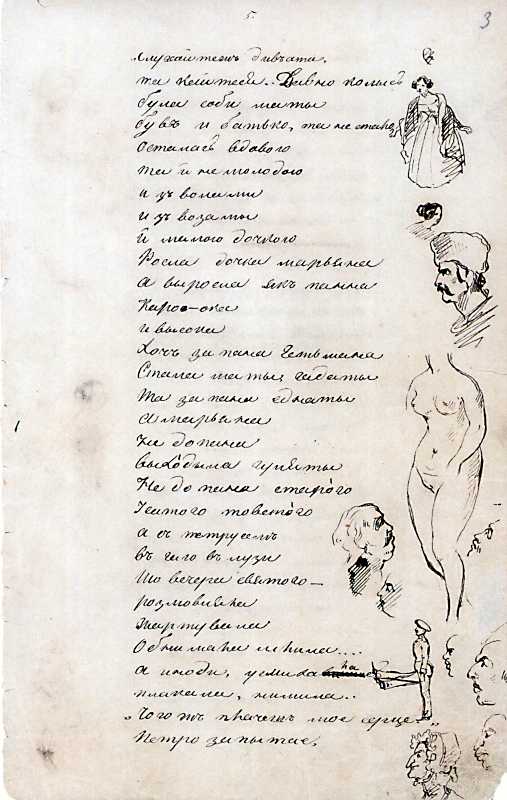 5.
3
Слухайтежъ дивчата.
та кайтеся.. Давно колысь
була соби маты
бувъ и батько, та не стало
Осталась вдовою
та и не молодою
и зъ волами
и зъ возамы
й малою дочкою
Росла дочка марьяна
а выросла якъ панна
Каро-ока
и высока
Хочъ за пана гетьмана
Стала маты гадаты
Та за пана еднаты
а марьяна
Не до пана
выходыла гуляты
Не до пана старого
Усатого товстого
а съ петрусемъ
въ гаю въ лузи
Що вечера святого —
розмовляла
Жартувала
Обнимала млила....
а иноди, усмиха на
плакала, нимила..
„Чого жъ плачешъ мое серце“
Петро запытає,